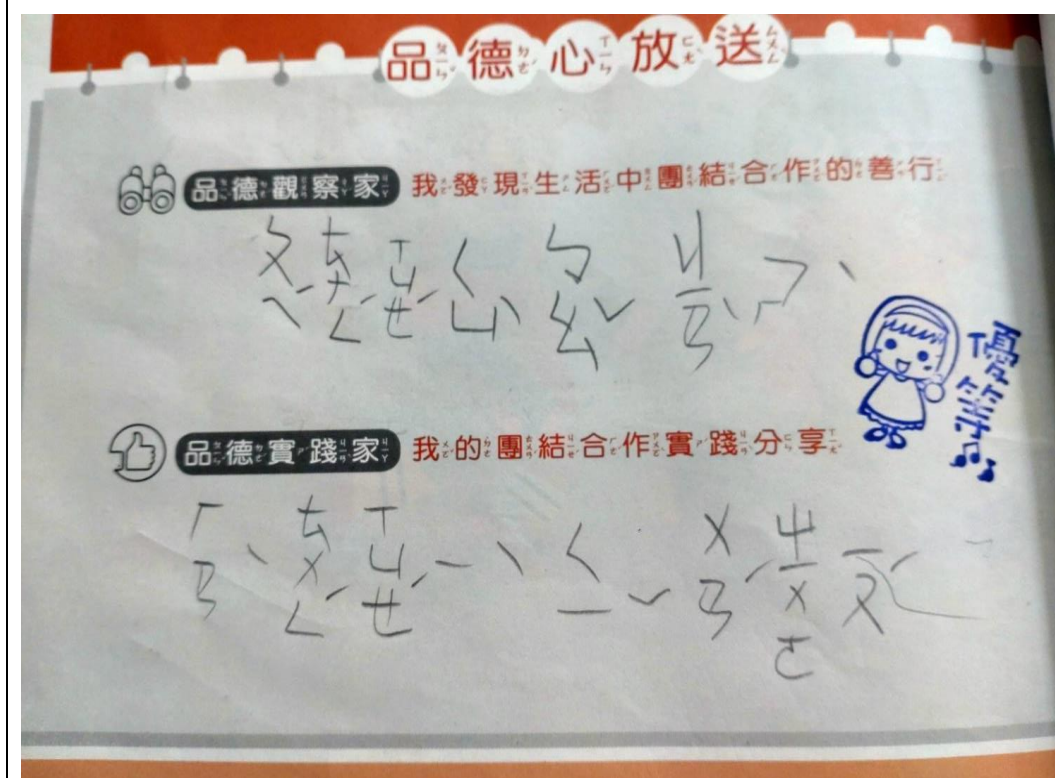 品德心放送
品德觀察家 我發現生活中團結合作的善行
ㄆㄟˊ ㄊㄨㄥˊ ㄒㄩㄝˊ ㄑㄩˋ ㄅㄠˇ ㄐㄧㄢˋ ㄕˋ
優等
品德實踐家 我的團結合作實踐分享
ㄏㄢˋ ㄊㄨㄥˊ ㄒㄩㄝˊ ㄧˋ ㄑㄧˇ ㄨㄢˊ ㄓㄨㄛ ㄧㄡˊ